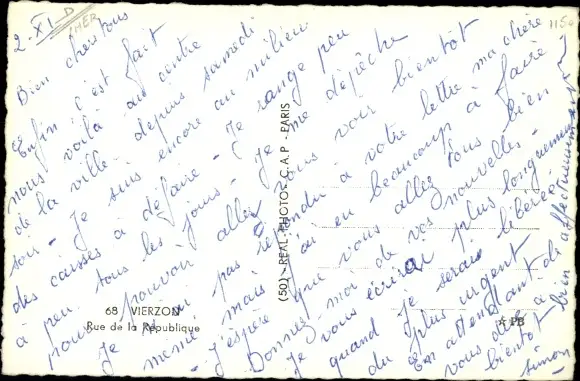 2. XI
CHER
1150
Bien chers tous
Enfin c'est fait
nous voilà au centre
de la ville depuis samedi
soir. Je suis encore au milieu
des caisses à défaire. Je range peu
à peu tous les jours. Je me dépêche
pour pouvoir aller vous voir bientôt
Je n'ai pas répondu à votre lettre ma chère
mémé mais j'ai eu beaucoup à faire
- J'espère que vous allez tous bien
Donnez moi de vos nouvelles -
Je vous écrirai plus longuement
quand je serai libérée
du plus urgent
En attendant de
vous voir
bientôt
bien affectueusement
Simon
68 VIERZON
Rue de la République
(50) - REAL-PHOTO - C.A.P - PARIS